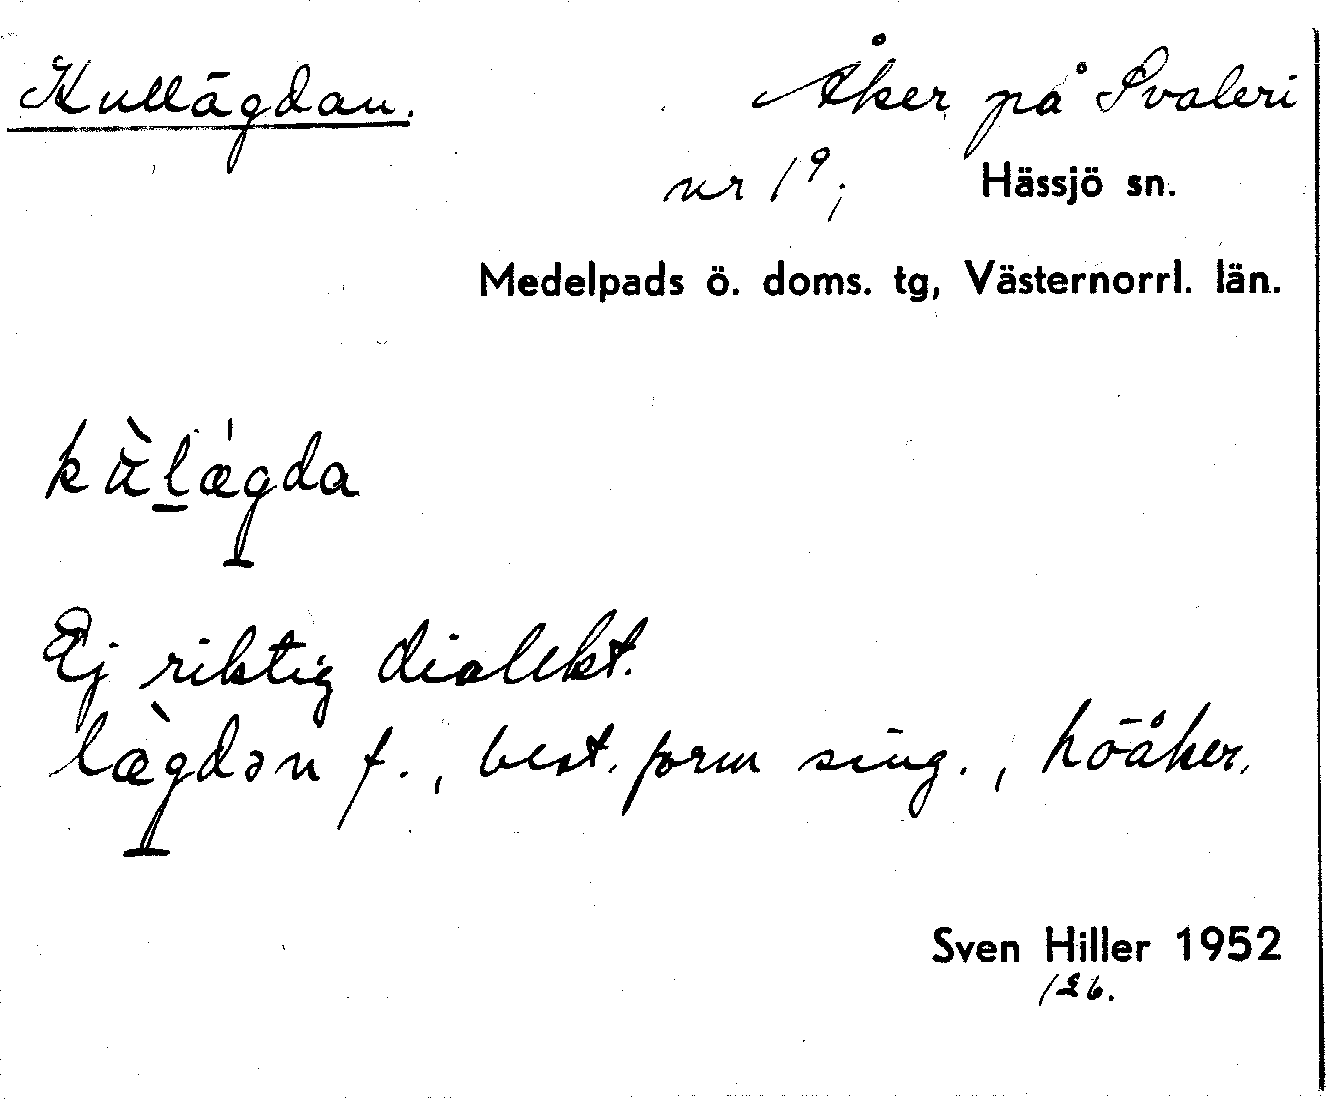 Kullägdan. Åker på Svaleri
nr 1⁹; Hässjö sn.
Medelpads ö. doms. tg, Västernorrl. län.
kùlǽgda
Ej riktig dialekt.
læ̀gdən f., best. form sing., höåker.
Sven Hiller 1952
126.